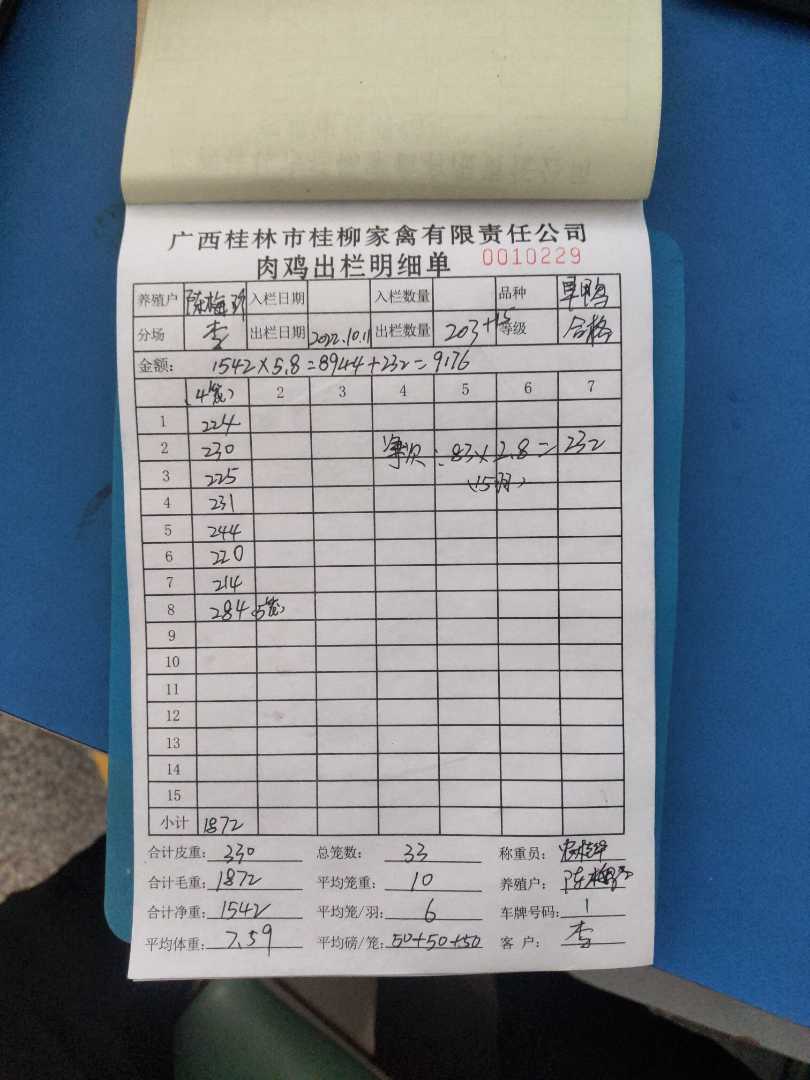 广西桂林市桂柳家禽有限责任公司
肉鸡出栏明细单 0010229
养殖户 陈梅珍 入栏日期 入栏数量 品种 旱鸭
分场 李 出栏日期 2022.10.11 出栏数量 203+15 等级 合格
金额: 1542×5.8=8944+232=9176
(4笼) 2 3 4 5 6 7
1 224
2 230 净次:83×2.8=232
3 225 (15羽)
4 231
5 244
6 220
7 214
8 284(5笼)
9
10
11
12
13
14
15
小计 1872
合计皮重: 330 总笼数: 33 称重员:
合计毛重: 1872 平均笼重: 10 养殖户: 陈梅珍
合计净重: 1542 平均笼/羽: 6 车牌号码: 1
平均体重: 7.59 平均磅/笼: 50+50+50 客户: 李